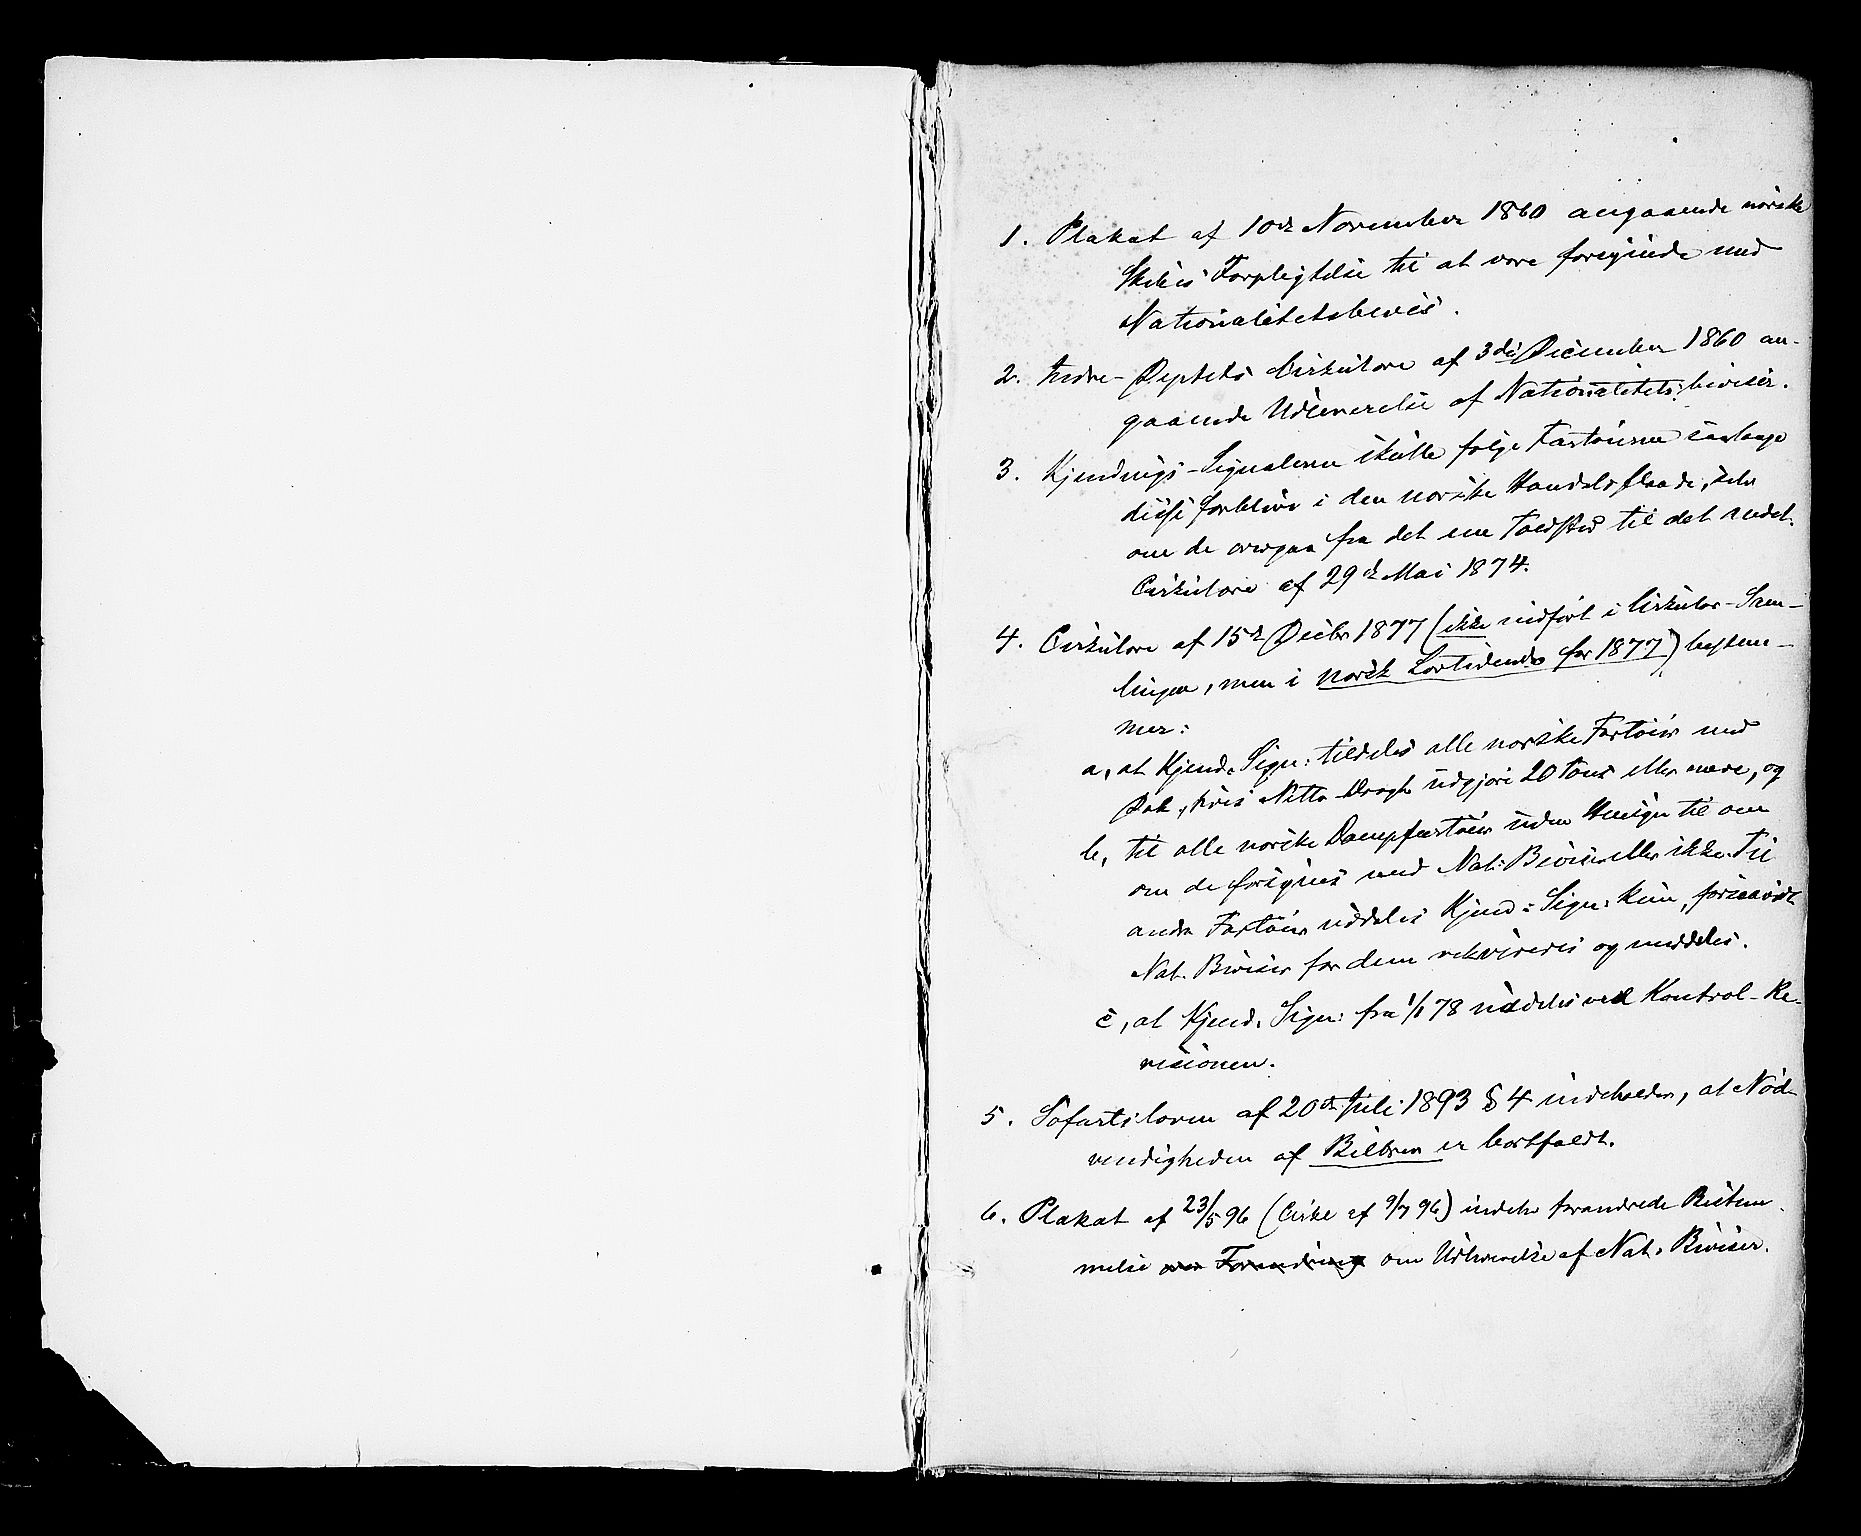 1. Plakat af 10de November 1860 angaaende norske
Skibes Forpligtelse til at være forsynede med
Nationalitetsbevis.
2. Indre-Deptets Cirkulære af 3die December 1860 an-
gaaende Udleverelse af Nationalitets-beviser.
3. Kjendings-Signalerne skulle følge Fartøierne saalænge
disse forblive i den norske Handelsflaade, selv
om de overgaa fra det ene Toldsted til det andet.
Cirkulære af 29de Mai 1874.
4. Cirkulære af 15de Decbr 1877 (ikke indført i Cirkulær-Sam-
lingen, men i norsk Lovtidende for 1877) bestem-
mer:
a, at Kjend. Sign: tildeles alle norske Fartøier med
Dæk, hvis Netto Drægt udgjøre 20 Tons eller mere, og
b, til alle norske Dampfartøier uden Hensyn til om
om de forsynes med Nat: Beviser eller ikke. Til
andre Fartøier uddeles Kjend: Sign: kun, forsaavidt
Nat. Beviser for dem rekvireres og meddeles.
c, at Kjend. Sign: fra 1/1 78 uddeles ved Kontrol-Re-
visionen.
5. Søfartsloven af 20de Juli 1893 § 4 indeholder, at Nød-
vendigheden af Bilbrev er bortfaldt.
6. Plakat af 23/5 96 (Cirkl af 9/7 96) indeh. forandrede Bestem
melse om Forandring om Udleverelse af Nat. Beviser.